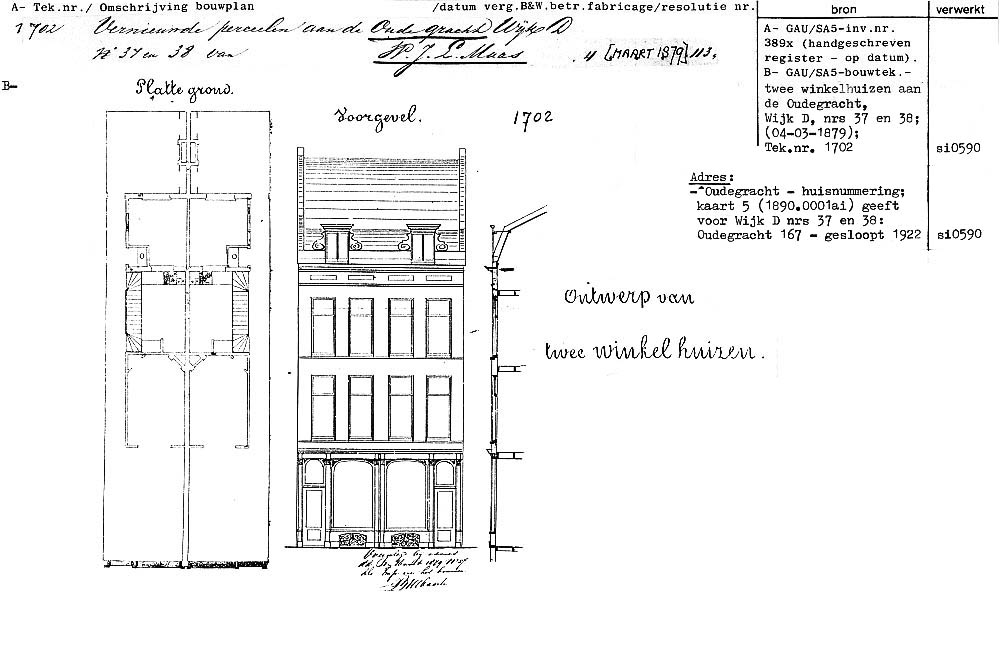 A- Tek.nr./ Omschrijving bouwplan /datum verg.B&W.betr.fabricage/resolutie nr. bron verwerkt
1702 Vernieuwde perceelen aan de Oude gracht Wijk D
No 37 en 38 van P. J. L. Maas. 4 [MAART 1879] 113.
A- GAU/SA5-inv.nr.
389x (handgeschreven
register - op datum).
B- GAU/SA5-bouwtek.-
twee winkelhuizen aan
de Oudegracht,
Wijk D, nrs 37 en 38;
(04-03-1879);
Tek.nr. 1702 si0590
Adres:
-^Oudegracht - huisnummering;
kaart 5 (1890.0001ai) geeft
voor Wijk D nrs 37 en 38:
Oudegracht 167 - gesloopt 1922 si0590
B-
Platte grond.
Voorgevel.
1702
Ontwerp van
twee winkelhuizen.